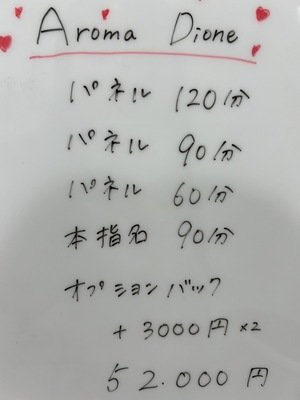 Aroma Dione
パネル 120分
パネル 90分
パネル 60分
本指名 90分
オプションバック
+3000円×2
52.000円